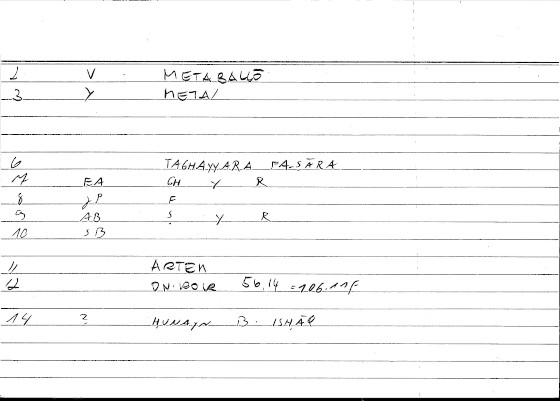 1 V METABALLŌ
3 Y META/
6 TAGHAYYARA FA-ṢĀRA
7 EA GH Y R
8 JP F
9 AB Ṣ Y R
10 SB
11 ARTEM
12 ON.IROCR 56,14 = 106.11f
14 ? ḤUNAYN B. ISḤĀQ